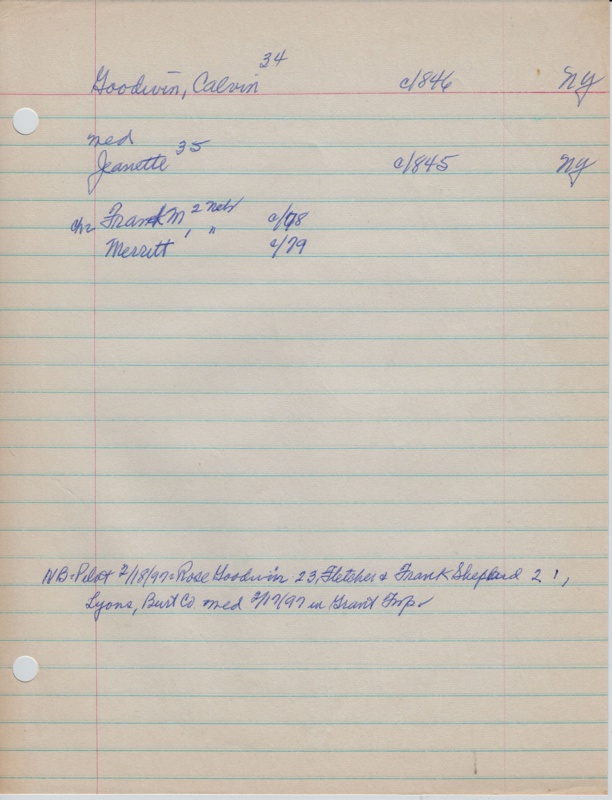 Goodwin, Calvin 34 c/846 NY
med
Jeanette 35 c/845 NY
ch2 Frank M 2 Neb c/78
Merritt 1 " c/79
NB-Pilot 2/18/97=Rose Goodwin 23, Fletcher & Frank Shepherd 21,
Lyons, Burt Co med 2/17/97 in Grant Twp